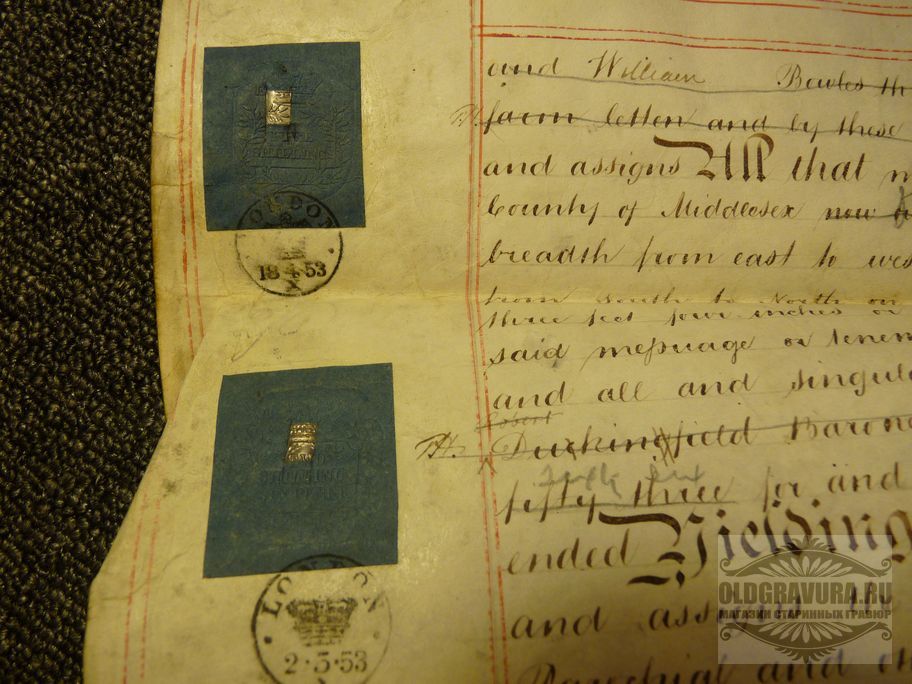 SHILLING
LONDON
18·4·53
X
SHILLING
LONDON
2·5·53
and William Bowles th
farm letten and by these
and assigns All that m
County of Middlesex now
breadth from east to wes
from South to North on
three feet four inches or
said messuage or tenem
and all and singula
Robert
P.H. Duckingfield Barone
fifty three for and
ended Yielding
and ass
Parochial and
OLDGRAVURA.RU
МАГАЗИН СТАРИННЫХ ГРАВЮР